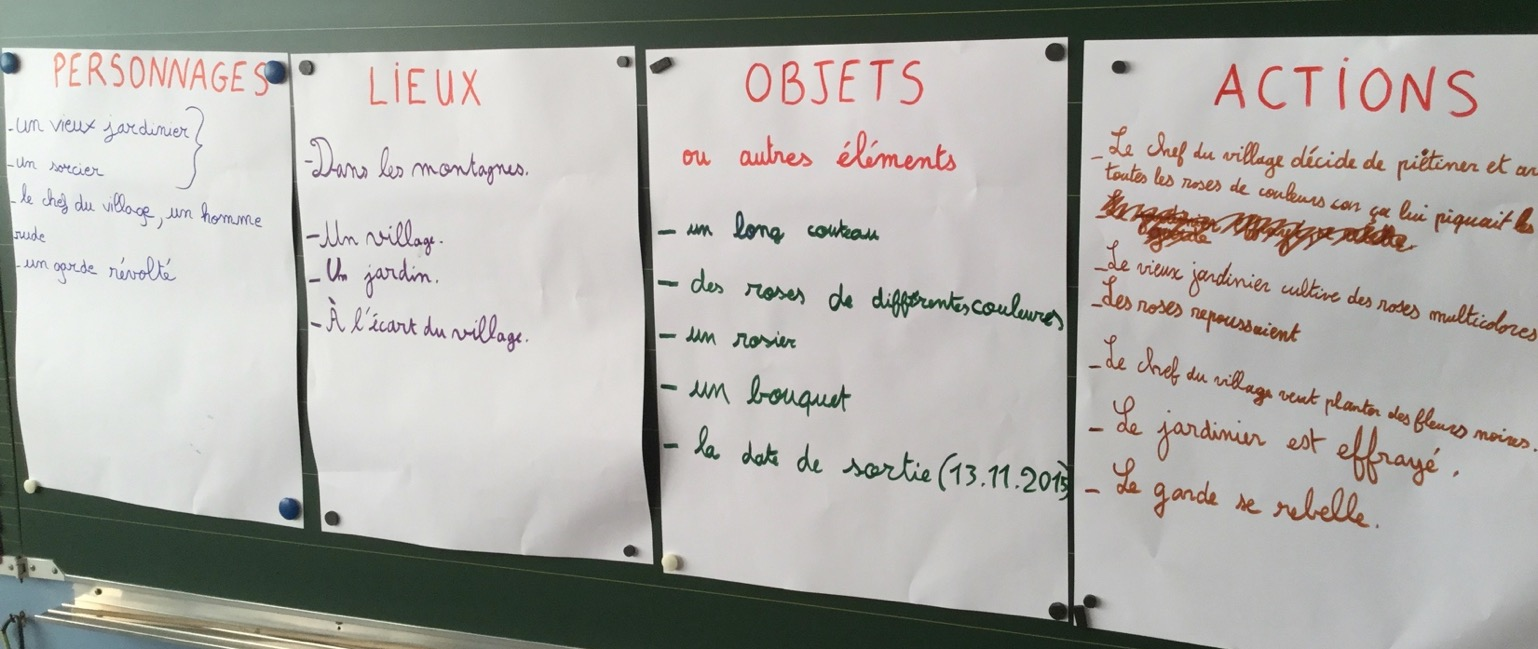 PERSONNAGES
- un vieux jardinier
- un sorcier
- le chef du village, un homme
rude
- un garde révolté
LIEUX
- Dans les montagnes.
- Un village.
- Un jardin.
- À l'écart du village.
OBJETS
ou autres éléments
- un long couteau
- des roses de différentes couleures
- un rosier
- un bouquet
- la date de sortie (13.11.2015)
ACTIONS
- Le chef du village décide de piétiner et
toutes les roses de couleurs car ça lui piquait les
- Le vieux jardinier cultive des roses multicolores
- Les roses repoussaient
- Le chef du village veut planter des fleurs noires.
- Le jardinier est effrayé.
- Le garde se rebelle.